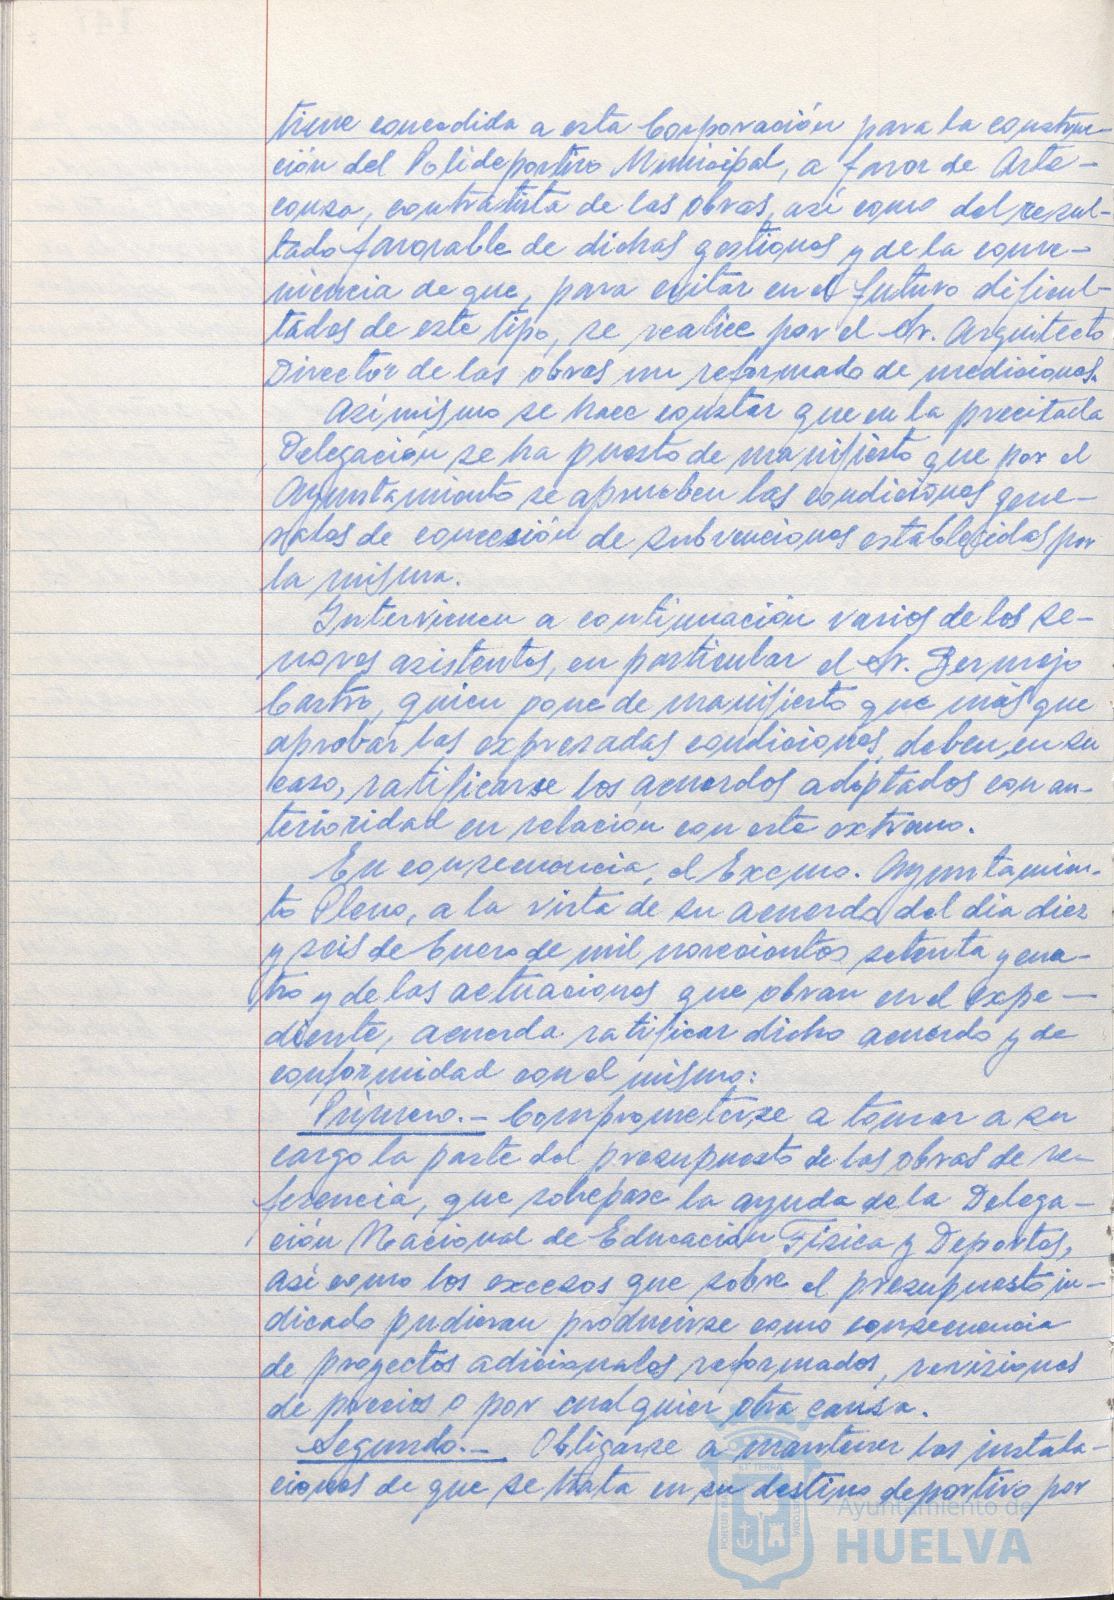 tiene concedida a esta Corporación para la construc-
ción del Polideportivo Municipal, a favor de Arte-
consa, contratista de las obras, así como del resul-
tado favorable de dichas gestiones y de la conve-
niencia de que, para evitar en el futuro dificul-
tades de este tipo, se realice por el Sr. Arquitecto
Director de las obras un reformado de mediciones.
Asimismo se hace constar que en la precitada
Delegación se ha puesto de manifiesto que por el
Ayuntamiento se aprueben las condiciones gene-
rales de concesión de subvenciones establecidas por
la misma.
Intervienen a continuación varios de los se-
ñores asistentes, en particular el Sr. Bermejo
Castro, quien pone de manifiesto que más que
aprobar las expresadas condiciones, deben, en su
caso, ratificarse los acuerdos adoptados con an-
terioridad en relación con este extremo.
En consecuencia, el Excmo. Ayuntamien-
to Pleno, a la vista de su acuerdo del dia diez
y seis de Enero de mil novecientos setenta y cua-
tro y de las actuaciones que obran en el expe-
diente, acuerda ratificar dicho acuerdo y de
conformidad con el mismo:
Primero.- Comprometerse a tomar a su
cargo la parte del presupuesto de las obras de re-
ferencia, que sobrepase la ayuda de la Delega-
ción Nacional de Educación Física y Deportes,
así como los excesos que sobre el presupuesto in-
dicado pudieran producirse como consecuencia
de proyectos adicionales reformados, revisiones
de precios o por cualquier otra causa.
Segundo.- Obligarse a mantener las instala-
ciones de que se trata en su destino deportivo por
Ayuntamiento de
HUELVA